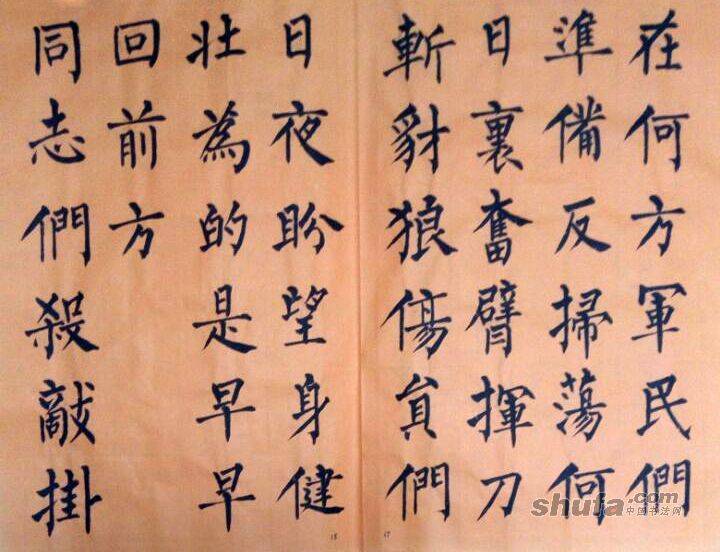 在何方軍民們
準備反掃蕩何
日裏奮臂揮刀
斬豺狼傷員們
日夜盼望身健
壯為的是早早
回前方
同志們殺敵掛
shufa.com
中国书法网
17
18